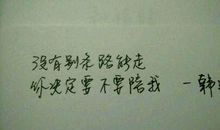 没有别条路能走
你决定要不要陪我 一韩